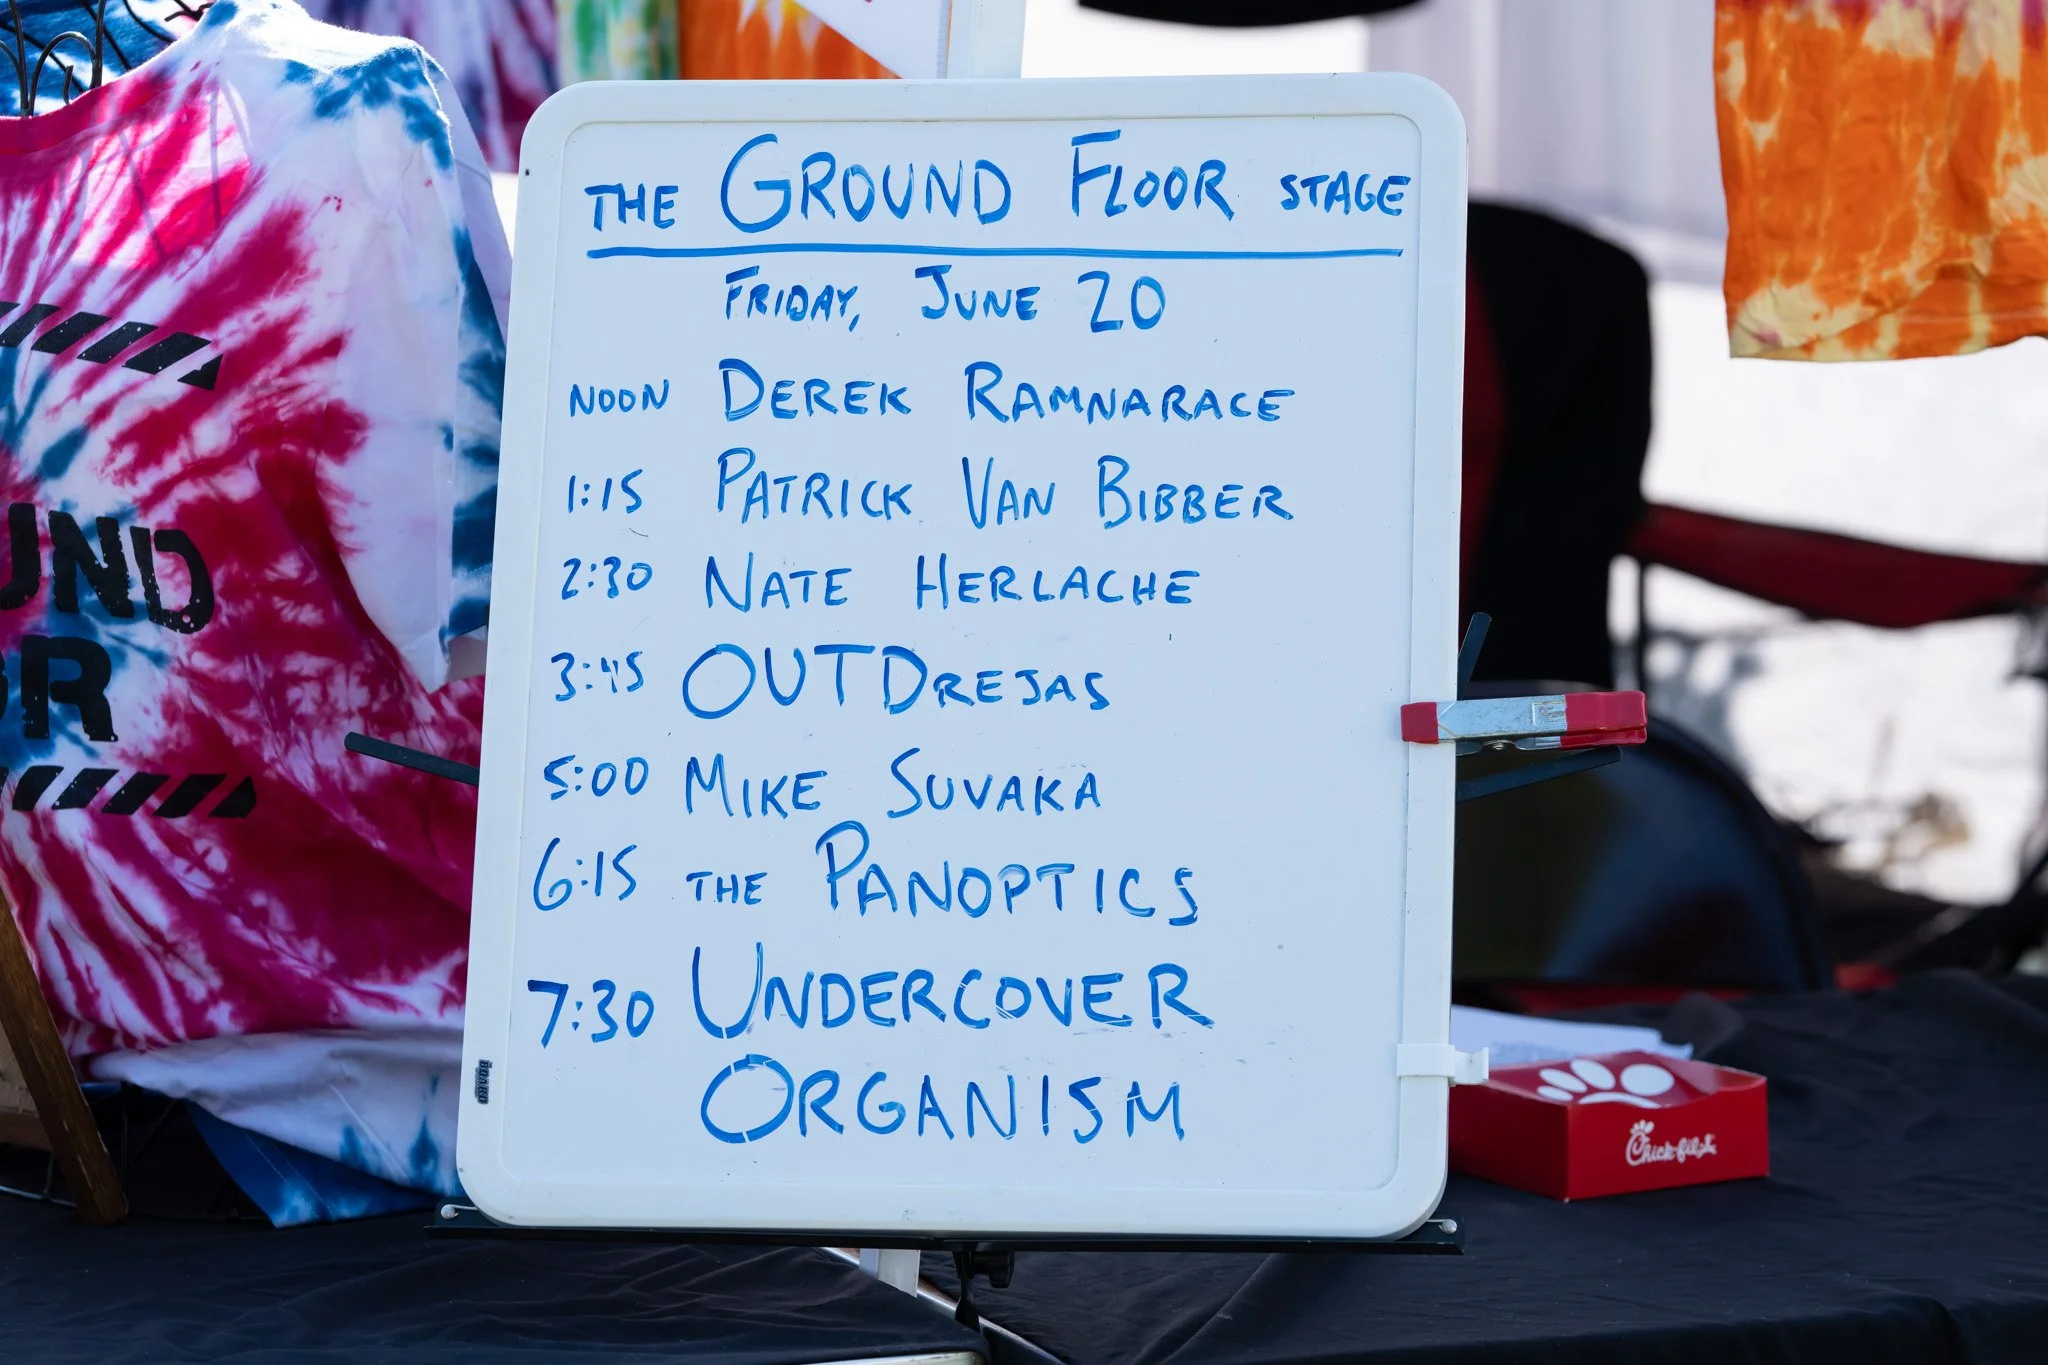 THE GROUND FLOOR STAGE
FRIDAY, JUNE 20
NOON DEREK RAMNARACE
1:15 PATRICK VAN BIBBER
2:30 NATE HERLACHE
3:45 OUTDREJAS
5:00 MIKE SUVAKA
6:15 THE PANOPTICS
7:30 UNDERCOVER
ORGANISM
BOARD
UND
OR
Chick-fil-A